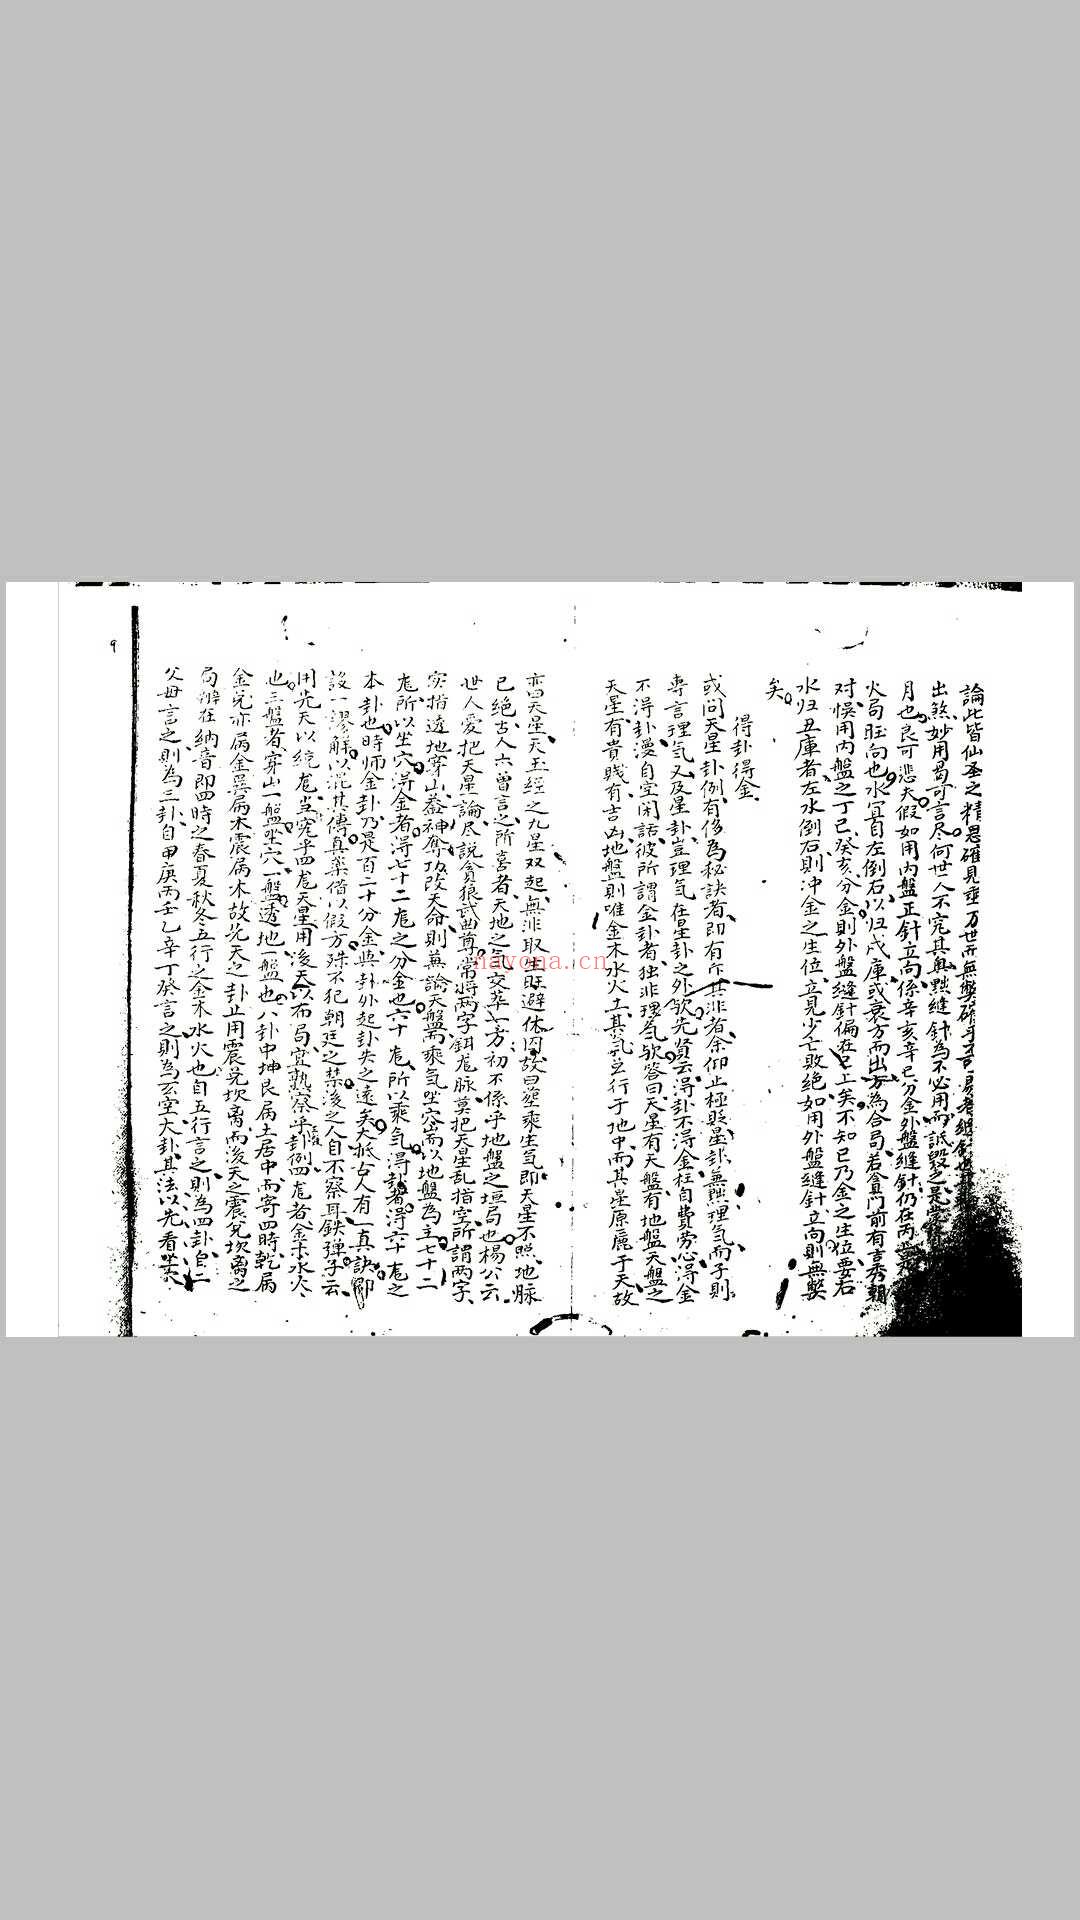 論此皆仙圣之精思確見垂万世而無弊
出煞妙用曷可言尽何世人不完其奥黜缝針為不必用而詆毁之是
月也良可悲夫假如用内盤正針立向係辛亥辛巳分金外盤缝針仍在丙
火局旺向也水宜自左倒右以归戌庫或衰方而出方為合局若貪门前有言秀朝
对悮用内盤之丁巳癸亥分金則外盤缝針偏在巳上矣不知巳乃金之生位要右
水归丑庫者左水倒右則冲金之生位立見少亡敗绝如用外盤缝針立向則無弊
矣
得卦得金
或问天星卦例有侈為秘訣者即有斥其非者余仰止極貶星卦兼黜理氣而子則
專言理気又及星卦豈理気在星卦之外欤先賢云得卦不得金枉自費劳心得金
不得卦漫自宜闲話彼所謂金卦者独非理気欤答曰天星有天盤有地盤天盤之
天星有貴賤有吉凶地盤則唯金木水火土其気行于地中而其星原麗于天故
亦曰天星天玉經之九星双起無非取生旺避休囚故曰塟乘生気即天星不照地脉
已绝古人亦曾言之所喜者天地之気交萃一方初不係乎地盤之垣局也楊公云
世人爱把天星論尽説貪狼武曲尊常將两字鉺龙脉莫把天星乱指空所謂两字
实指透地穿山蓋神奪功改天命則兼論天盤而乘気坐穴耑以地盤為主七十二
龙所以坐穴得金者得七十二龙之分金也六十龙所以乘気得卦者得六十龙之
本卦也時师金卦乃是百二十分金與卦外起卦失之遠矣大抵古人有一真訣即
設一謬解以混其傳真藥借以假方殊不犯朝廷之禁後之人自不察耳鉄弹子云
用先天以統龙当完乎四龙天星用後天以布局宜熟察乎卦例四龙者金木水火
也三盤者穿山一盤坐穴一盤透地一盤也八卦中坤艮屬土居中而寄四時乾屬
金兑亦屬金巽屬木震屬木故先天之卦止用震兑坎离而後天之震兑坎离之
局辨在納音即四時之春夏秋冬五行之金木水火也自五行言之則為四卦自二
父母言之則為三卦自甲庚丙壬乙辛丁癸言之則為玄空大卦其法以先看坐穴
nayona.cn
9